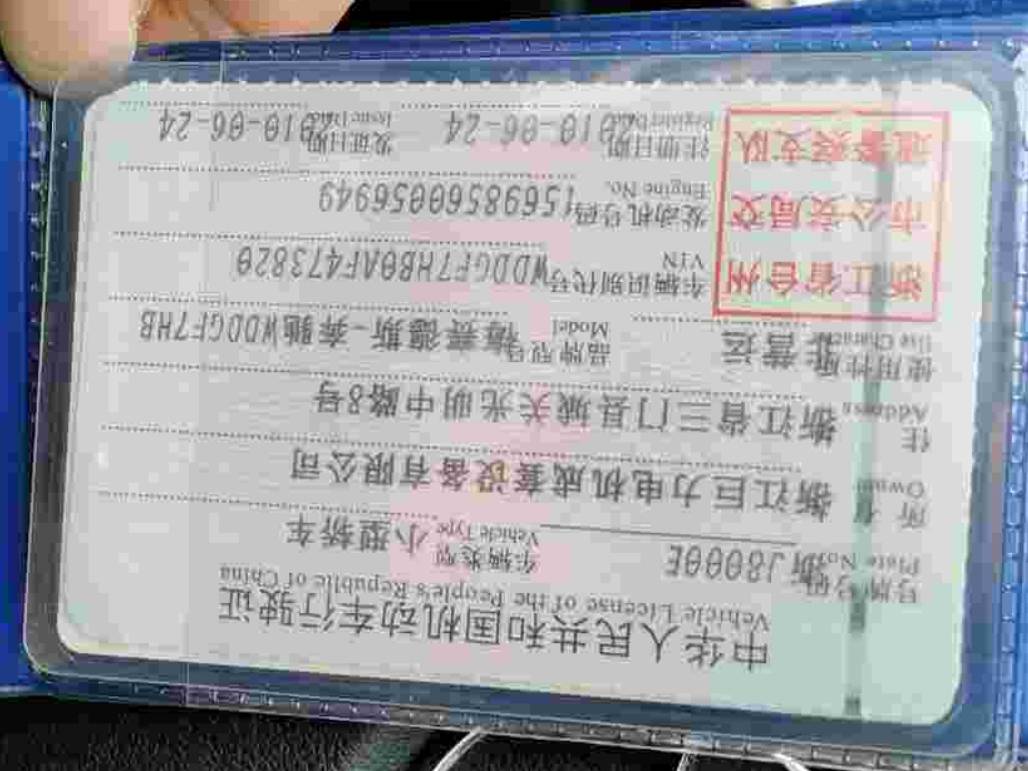 中华人民共和国机动车行驶证
Vehicle License of the People's Republic of China
号牌号码 浙J8000E 车辆类型 小型轿车
Plate No. Vehicle Type
所有 浙江巨力电机成套设备有限公司
Owner
住 浙江省三门县城关光明中路8号
Address
使用性质 非营运 品牌型号 梅赛德斯-奔驰WDDGF7HB
Use Character Model
浙江省台州
市公安局交
通警察支队
车辆识别代号 WDDGF7HB0AF473820
VIN
发动机号码 15698560056949
Engine No.
注册日期 2010-06-24 发证日期 2010-06-24
Register Date Issue Date